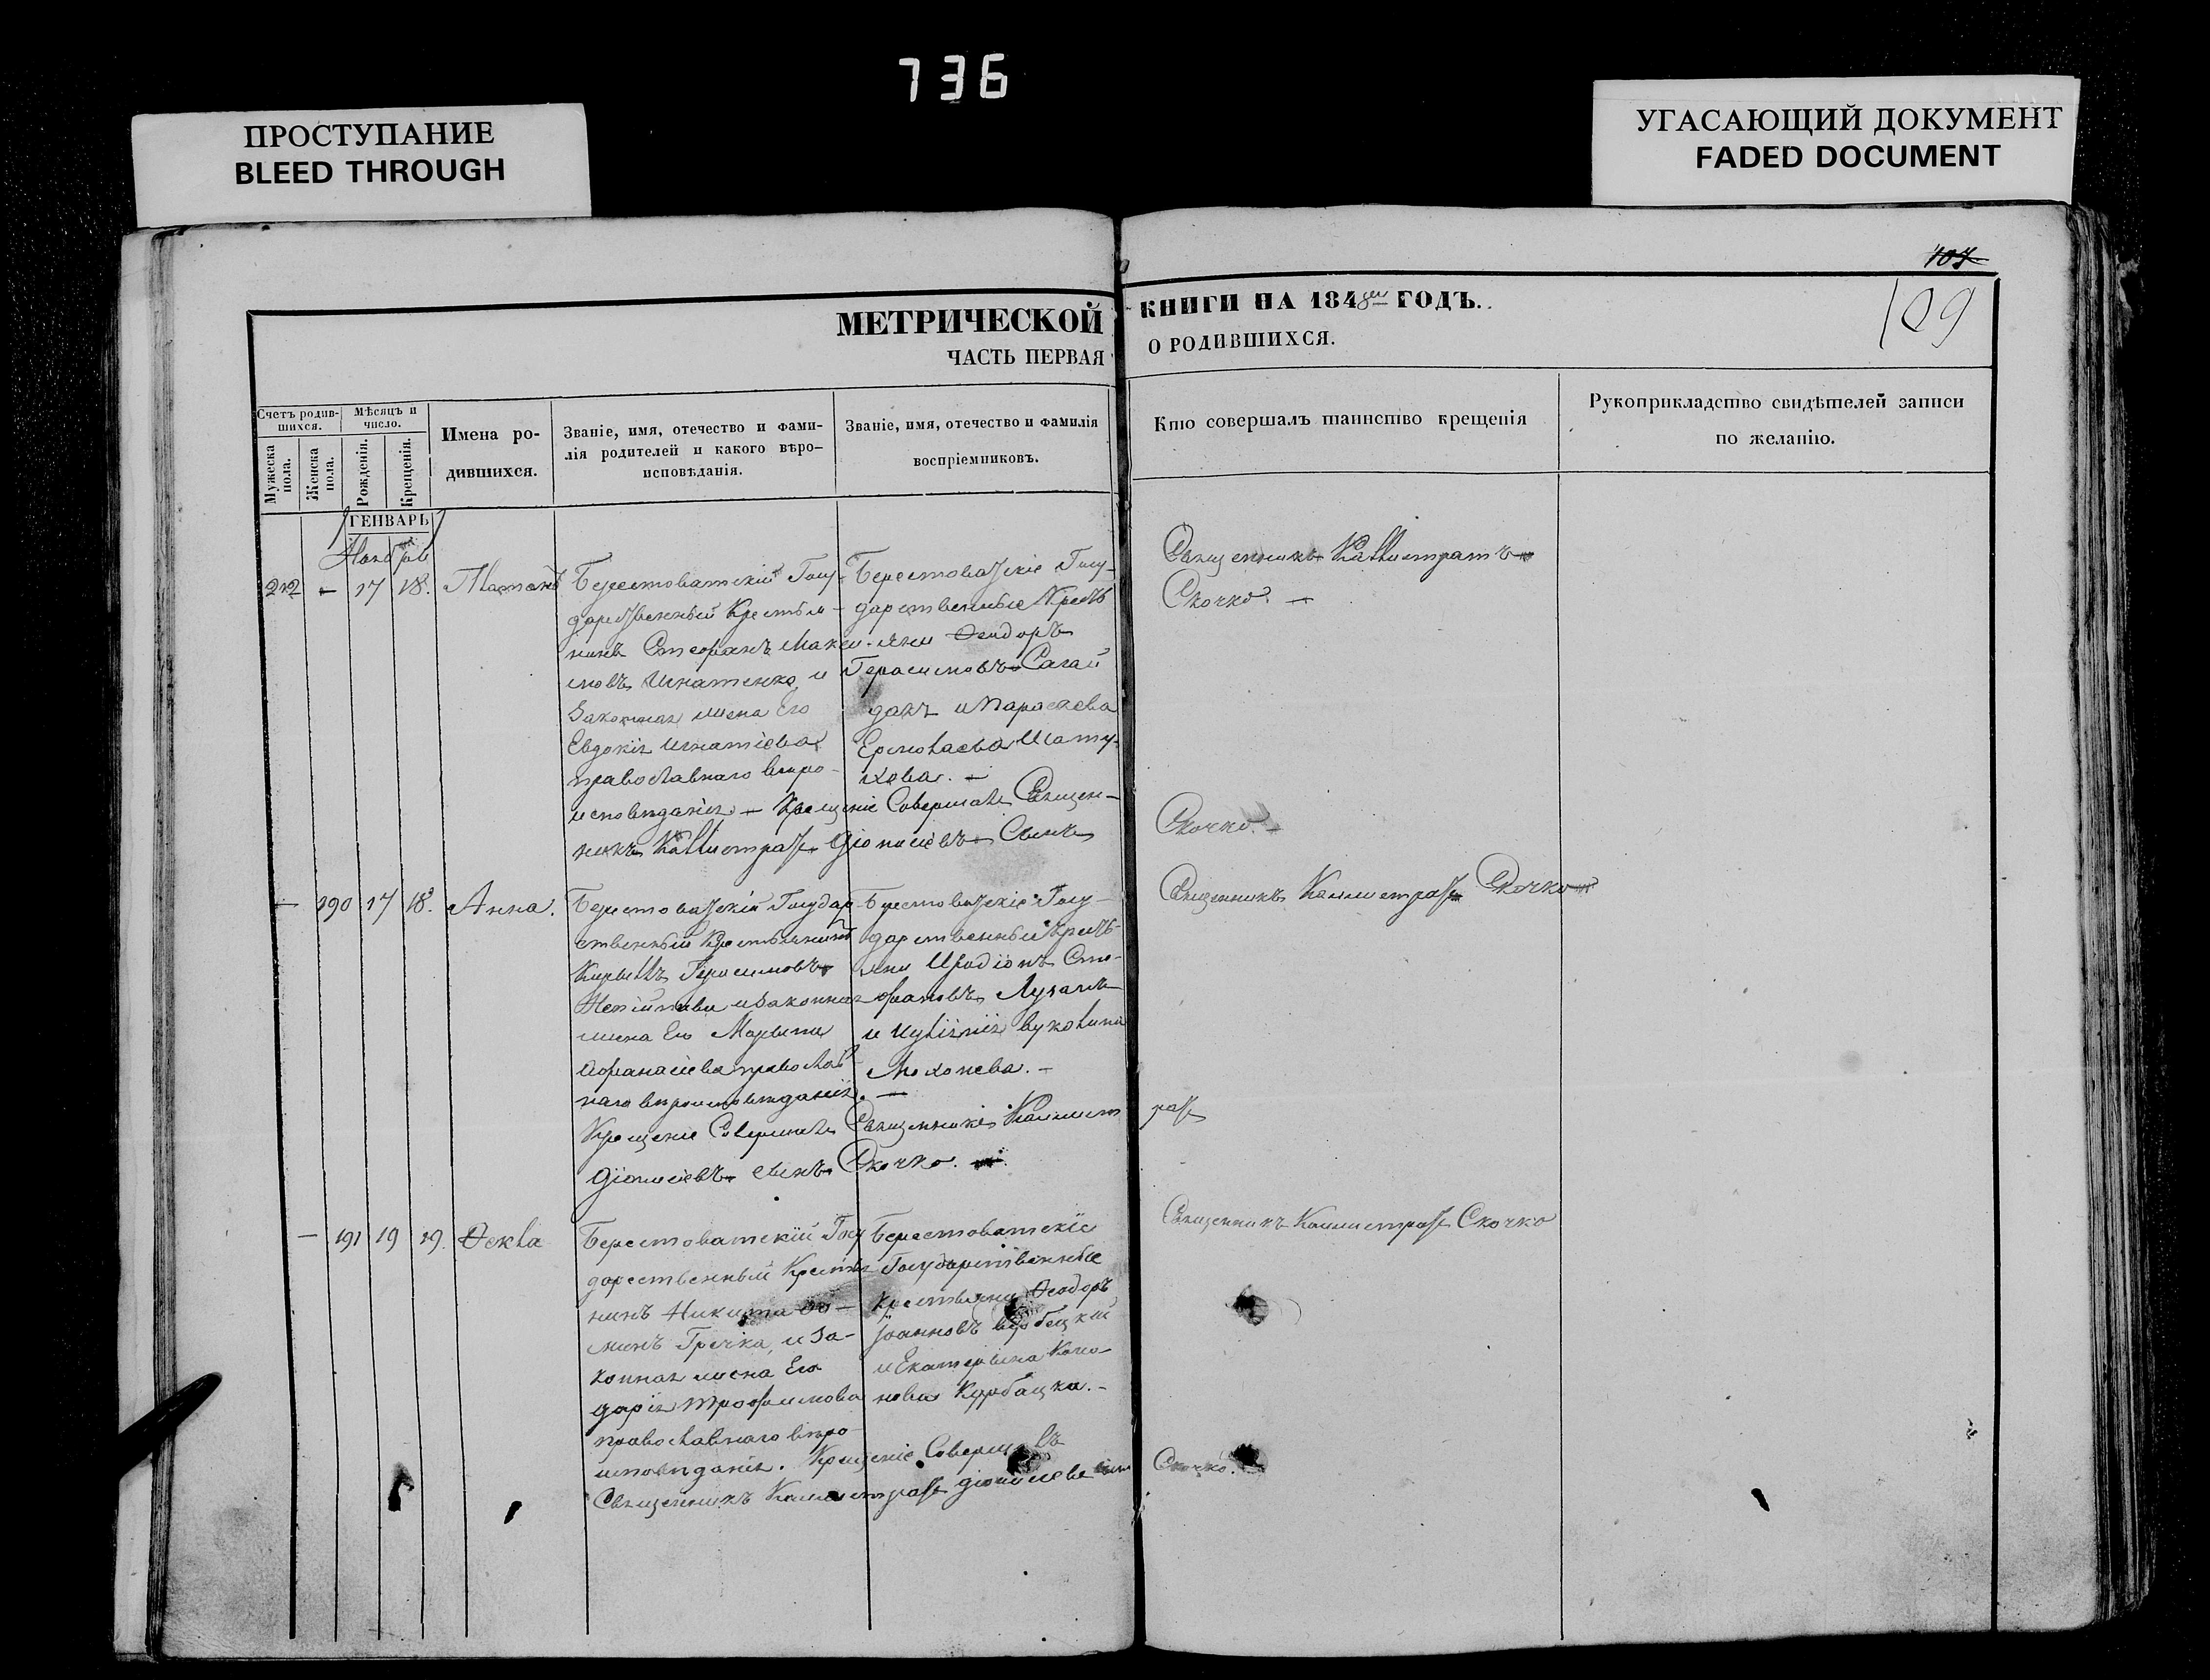 736
ПРОСТУПАНИЕ
BLEED THROUGH
УГАСАЮЩИЙ ДОКУМЕНТ
FADED DOCUMENT
107
109
МЕТРИЧЕСКОЙ КНИГИ НА 1848 ГОДЪ.
ЧАСТЬ ПЕРВАЯ О РОДИВШИХСЯ.
Счетъ родив-
шихся.
Мужеска
пола.
Женска
пола.
Мѣсяцъ и
число.
Рожденія.
Крещенія.
Имена ро-
дившихся.
Званіе, имя, отечество и фами-
лія родителей и какого вѣро-
исповѣданія.
Званіе, имя, отечество и фамилія
воспріемниковъ.
Кто совершалъ таинство крещенія
Рукоприкладство свидѣтелей записи
по желанію.
ГЕНВАРЬ
Ноябрь
212 — 17 18. Платонъ
Берестоватскій Госу-
дарственный Крестья-
нинъ Стефанъ Макси-
мовъ Игнатенко, и
Законная жена Его
Евдокія Игнатіева
православнаго вѣро-
исповѣданія. — Крещеніе Совершалъ Священ-
никъ Каллистратъ Діонисіевъ Сынъ
Скочко. —
Берестоватскіе Госу-
дарственные Кресть
яни Феодоръ
Герасимовъ Сагай
дакъ и Параскева
Ермолаева
Священникъ Каллистратъ
Скочко. —
— 190 17 18. Анна.
Берестоватскій Государ-
ственный Крестьянинъ
Кириллъ Герасимовъ
и законная
жена Его Марина
Афанасіева православ
наго вѣроисповѣданія. —
Крещеніе Совершалъ Священникъ Каллист ратъ
Діонисіевъ сынъ Скочко.
Берестоватскіе Госу-
дарственныи Кресть-
яни Иродіонъ Сте-
фановъ
и Вуколина
Священникъ Каллистратъ Скочко
— 191 19 19. Фекла
Берестоватскій Госу
дарственный Крестья
нинъ Никита Фо-
минъ Гречка, и за-
конная жена Его
Дарія Трофимова
православнаго вѣро-
исповѣданія. Крещеніе Совершалъ
Священникъ Каллистратъ Діонисіевъ сынъ Скочко.
Берестоватскіе
Государственные
Крестьяни Феодоръ
Іоанновъ
и Екатерина
нова Курбацка. —
Священникъ Каллистратъ Скочко